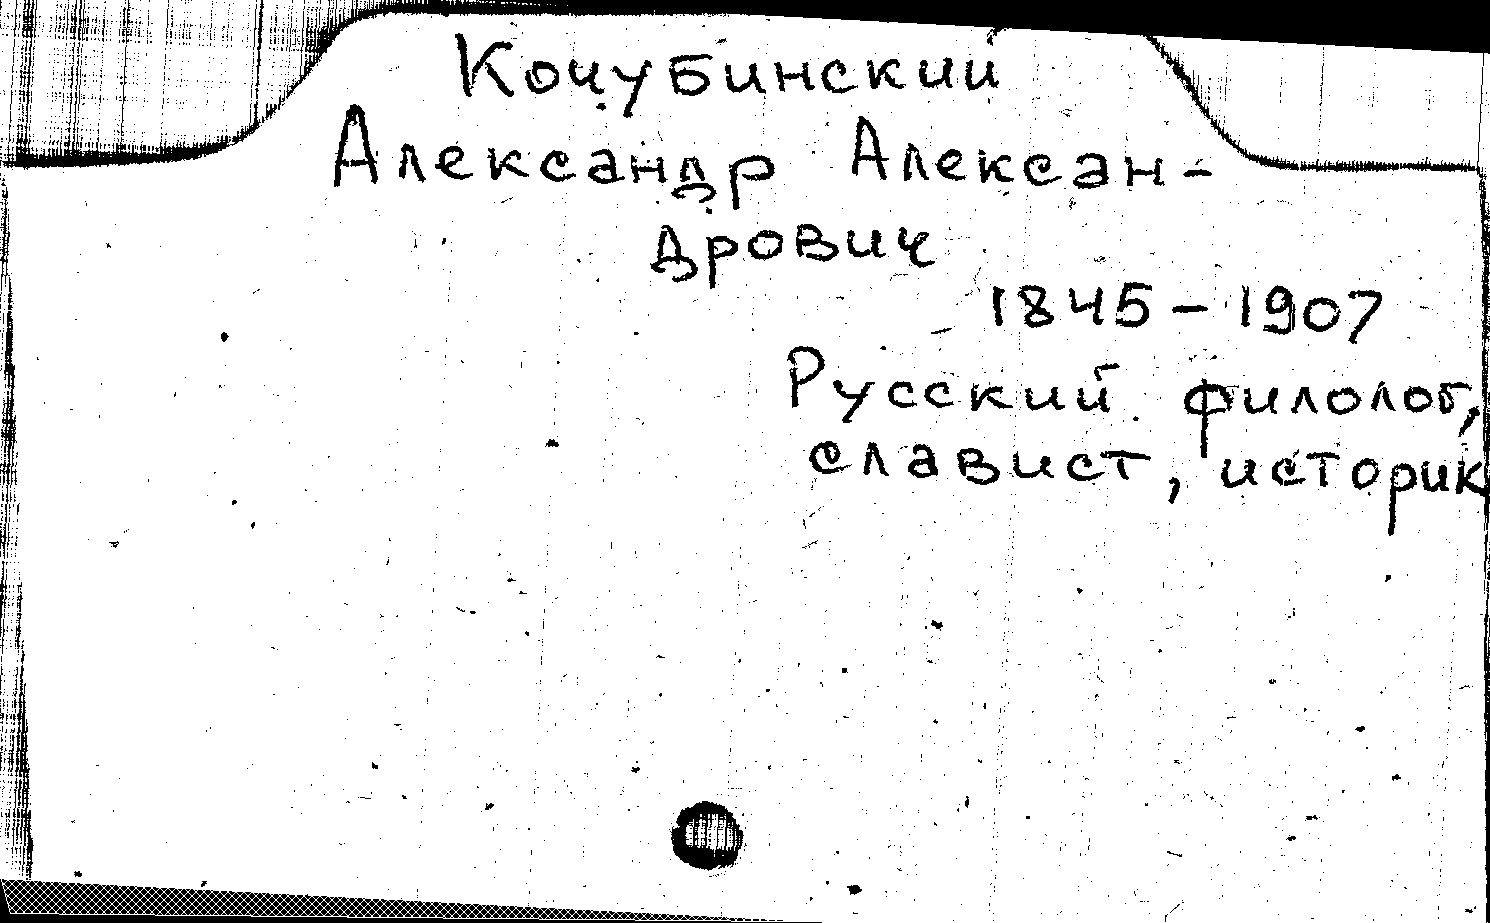 Кочубинский
Александр Алексан-
дрович
1845-1907
Русский филолог,
славист, историк